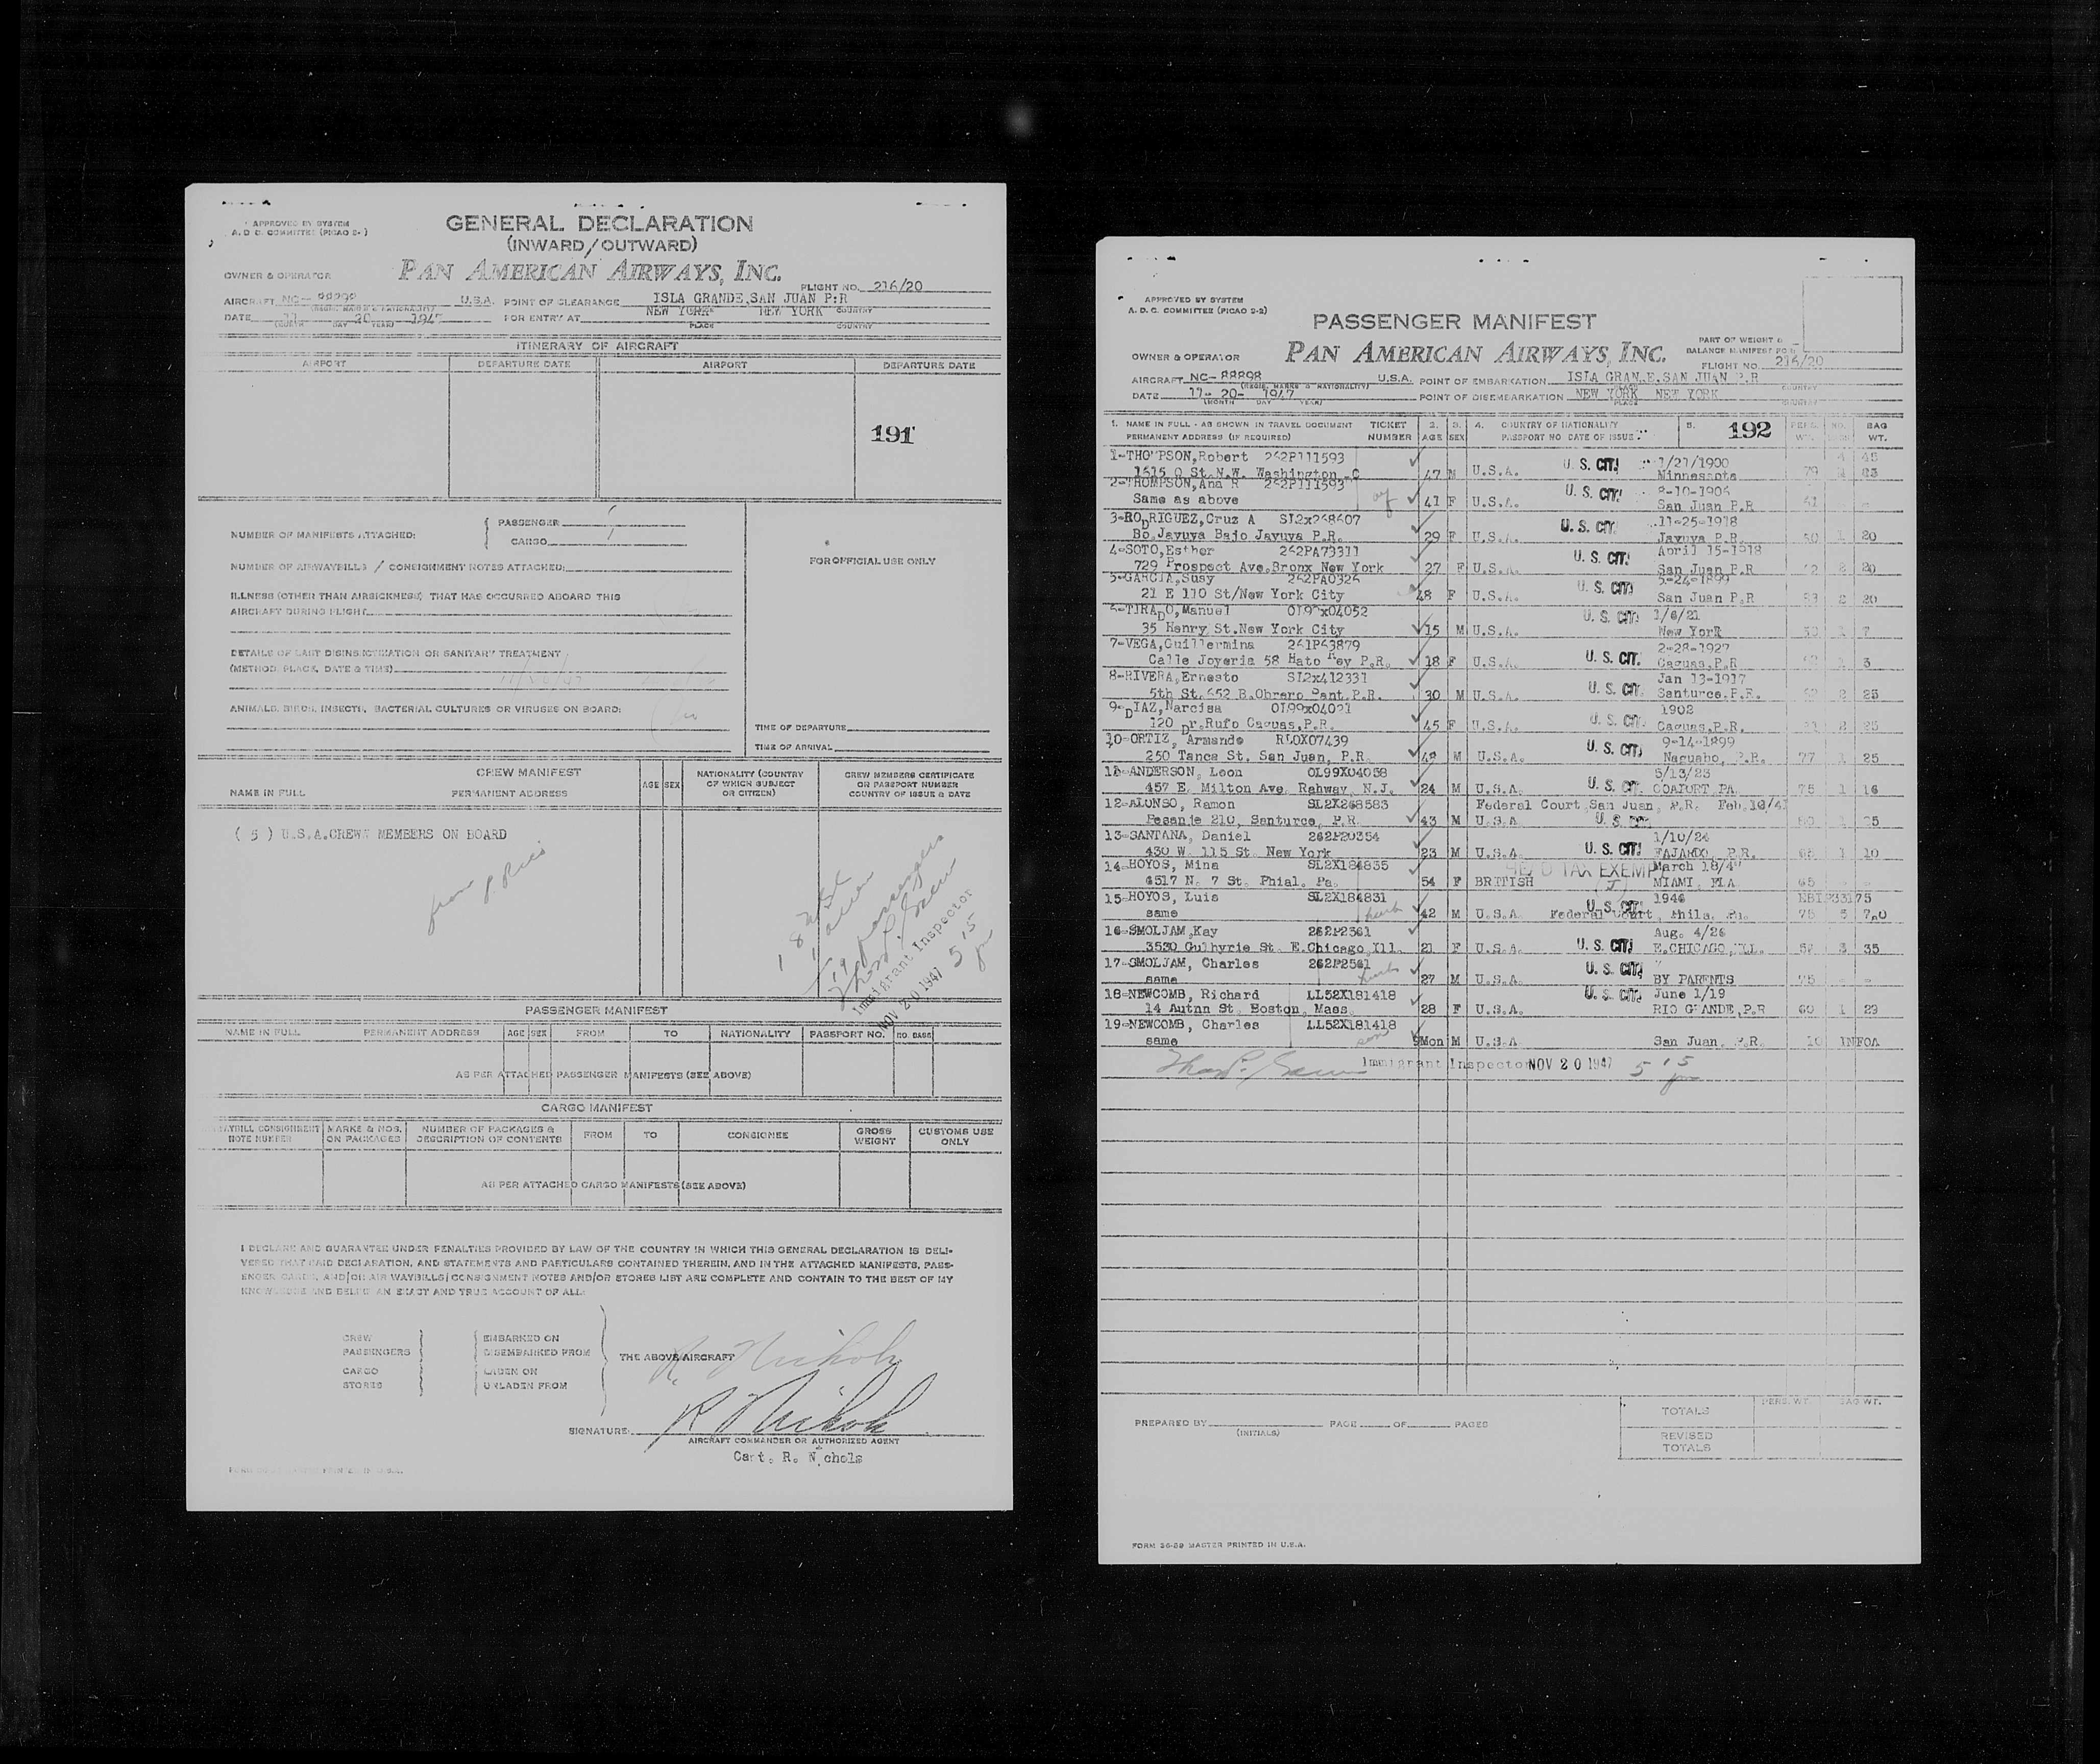 APPROVED BY SYSTEM
A. D. C. COMMITTEE (PICAO 2- )
GENERAL DECLARATION
(INWARD/OUTWARD)
OWNER & OPERATOR
PAN AMERICAN AIRWAYS, INC.
FLIGHT NO. 216/20
AIRCRAFT NC- U.S.A. POINT OF CLEARANCE ISLA GRANDE,SAN JUAN P:R
(REGIS. MARKS & NATIONALITY) COUNTRY
DATE 11 20 1947 FOR ENTRY AT NEW YORK NEW YORK
(MONTH DAY YEAR) PLACE COUNTRY
ITINERARY OF AIRCRAFT
AIRPORT DEPARTURE DATE AIRPORT DEPARTURE DATE
191
NUMBER OF MANIFESTS ATTACHED: PASSENGER 1
CARGO 1
FOR OFFICIAL USE ONLY
NUMBER OF AIRWAYBILLS / CONSIGNMENT NOTES ATTACHED:
ILLNESS (OTHER THAN AIRSICKNESS) THAT HAS OCCURRED ABOARD THIS
AIRCRAFT DURING FLIGHT
DETAILS OF LAST DISINSECTIZATION OR SANITARY TREATMENT
(METHOD, PLACE, DATE & TIME)
ANIMALS, BIRDS, INSECTS, BACTERIAL CULTURES OR VIRUSES ON BOARD:
no
TIME OF DEPARTURE
TIME OF ARRIVAL
CREW MANIFEST
NAME IN FULL PERMANENT ADDRESS AGE SEX NATIONALITY (COUNTRY OF WHICH SUBJECT OR CITIZEN) CREW MEMBERS CERTIFICATE OR PASSPORT NUMBER COUNTRY OF ISSUE & DATE
( 5 ) U.S.A.CREW MEMBERS ON BOARD
from P. Rico
18 USC
1 alien
19 passengers
Immigrant Inspector
NOV 20 1947
5 15 pm
PASSENGER MANIFEST
NAME IN FULL PERMANENT ADDRESS AGE SEX FROM TO NATIONALITY PASSPORT NO. NO. BAGS
AS PER ATTACHED PASSENGER MANIFESTS (SEE ABOVE)
CARGO MANIFEST
WAYBILL CONSIGNMENT NOTE NUMBER MARKS & NOS. ON PACKAGES NUMBER OF PACKAGES & DESCRIPTION OF CONTENTS FROM TO CONSIGNEE GROSS WEIGHT CUSTOMS USE ONLY
AS PER ATTACHED CARGO MANIFESTS (SEE ABOVE)
I DECLARE AND GUARANTEE UNDER PENALTIES PROVIDED BY LAW OF THE COUNTRY IN WHICH THIS GENERAL DECLARATION IS DELI-
VERED THAT SAID DECLARATION, AND STATEMENTS AND PARTICULARS CONTAINED THEREIN, AND IN THE ATTACHED MANIFESTS, PASS-
ENGER CARDS, AND/OR AIR WAYBILLS/CONSIGNMENT NOTES AND/OR STORES LIST ARE COMPLETE AND CONTAIN TO THE BEST OF MY
KNOWLEDGE AND BELIEF AN EXACT AND TRUE ACCOUNT OF ALL:
CREW EMBARKED ON
PASSENGERS DISEMBARKED FROM
THE ABOVE AIRCRAFT
CARGO LADEN ON
STORES UNLADEN FROM
R. Nichols
SIGNATURE: R Nichols
AIRCRAFT COMMANDER OR AUTHORIZED AGENT
Capt. R. Nichols
APPROVED BY SYSTEM
A. D. C. COMMITTEE (PICAO 2-2)
PASSENGER MANIFEST
OWNER & OPERATOR
PAN AMERICAN AIRWAYS, INC.
PART OF WEIGHT &
BALANCE MANIFEST FORM
FLIGHT NO. 216/20
AIRCRAFT NC- 88898 U.S.A. POINT OF EMBARKATION ISLA GRAN.E.SAN JUAN P.R
(REGIS. MARKS & NATIONALITY) PLACE COUNTRY
DATE 11- 20- 1947 POINT OF DISEMBARKATION NEW YORK NEW YORK
(MONTH DAY YEAR) PLACE COUNTRY
1. NAME IN FULL - AS SHOWN IN TRAVEL DOCUMENT TICKET 2. 3. 4. COUNTRY OF NATIONALITY 5. 192 PERS. NO. BAG
PERMANENT ADDRESS (IF REQUIRED) NUMBER AGE SEX PASSPORT NO. DATE OF ISSUE WT. WT.
1-THOMPSON,Robert 262P111593 U. S. CIT. 1/21/1900
1615 Q St.N.W. Washington 47 M U.S.A. Minnesota 79
2-THOMPSON,Ana R 262P111593 U. S. CIT. 8-10-1906
Same as above 41 F U.S.A. San Juan P.R 61
3-RODRIGUEZ,Cruz A SL2x268607 U. S. CIT. 11-25-1918
Bo.Jayuya Bajo Jayuya P.R. 29 F U.S.A. Jayuya P.R. 50 1 20
4-SOTO,Esther 262PA73311 U. S. CIT. April 15-1918
729 Prospect Ave.Bronx New York 27 F U.S.A. San Juan P.R 2 20
5-GARCIA,Susy 262PA0326 U. S. CIT. 5-24-1899
21 E 110 St/New York City 48 F U.S.A. San Juan P.R 83 2 20
6-TIRADO,Manuel OL99x04052 U. S. CIT. 1/6/21
35 Henry St.New York City 15 M U.S.A. New York 1 7
7-VEGA,Guillermina 261P63879 2-28-1927
Calle Joyeria 58 Hato Rey P.R. 18 F U.S.A. U. S. CIT. Caguas,P.R 3
8-RIVERA,Ernesto SL2x412331 Jan 13-1917
5th St.652 B.Obrero Sant.P.R. 30 M U.S.A. U. S. CIT. Santurce.P.R. 2 25
9-DIAZ,Narcisa OL99x04021 1902
120 Dr.Rufo Caguas,P.R. 45 F U.S.A. U. S. CIT. Caguas,P.R. 2 25
10-ORTIZ, Armando RLOX07439 9-14-1899
250 Tanca St. San Juan, P.R. 48 M U.S.A. U. S. CIT. Naguabo, P.R. 77 1 25
11-ANDERSON, Leon OL99X04058 5/13/23
457 E. Milton Ave. Rahway, N.J. 24 M U.S.A. U. S. CIT. PA. 75 1 16
12-ALONSO, Ramon SL2X268583 Federal Court San Juan, P.R. Feb.
Pesante 210, Santurce, P.R. 43 M U.S.A U. S. CIT. 80 1
13-SANTANA, Daniel 262P20354 1/10/24
430 W. 115 St. New York 23 M U.S.A U. S. CIT. FAJARDO, P.R. 65 1 10
14-HOYOS, Mina SL2X184835 HEAD TAX EXEMPT March 18/4
4517 N. 7 St. Phial. Pa. 54 F BRITISH MIAMI, FLA 65
15-HOYOS, Luis SL2X184831 U. S. CIT. 1946
same husb 42 M U.S.A Federal Court, Phila. Pa. 75
16-SMOLJAM,Kay 262P2561 Aug. 4/26
3530 Guthyrie St. E.Chicago,Ill. 21 F U.S.A. U. S. CIT. E.CHICAGO,ILL. 3 35
17-SMOLJAM, Charles 262P2561 U. S. CIT.
same husb 27 M U.S.A. BY PARENTS 75
18-NEWCOMB, Richard LL52X181418 U. S. CIT. June 1/19
14 Autnn St. Boston, Mass. 28 F U.S.A. RIO GRANDE,P.R 60 1 29
19-NEWCOMB, Charles LL52X181418
same son 9Mon M U.S.A San Juan, P.R. 10 INFOA
Immigrant Inspector NOV 20 1947 5 15 pm
PREPARED BY PAGE OF PAGES
(INITIALS)
PERS. WT. BAG WT.
TOTALS
REVISED
TOTALS
FORM 36-29 MASTER PRINTED IN U.S.A.